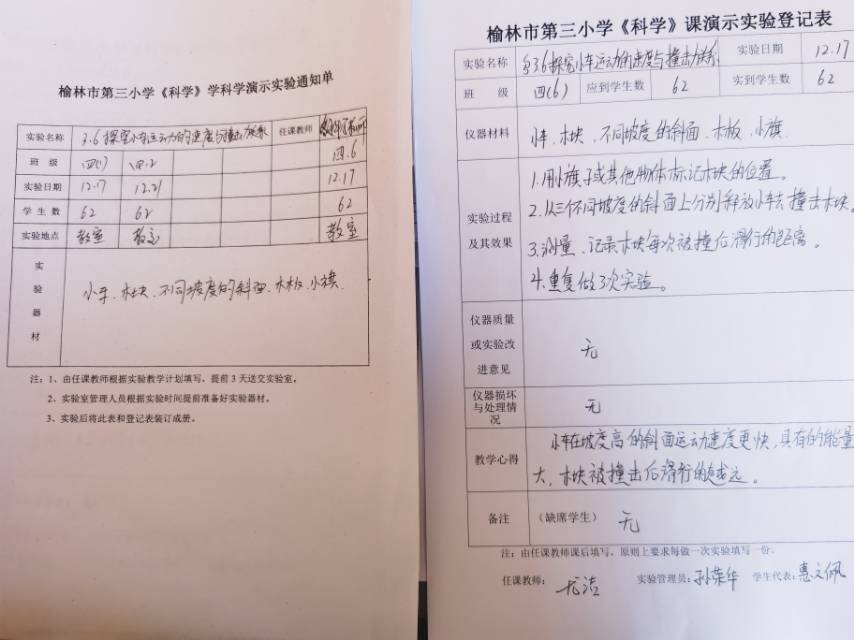 榆林市第三小学《科学》学科学演示实验通知单
实验名称 3.6探究小车运动的速度与撞击 任课教师
班 级 四(1) 四.2 四.6
实验日期 12.17 12.21 12.17
学 生 数 62 62 62
实验地点 教室 教室 教室
实验器材 小车、木块、不同坡度的斜面、木板、小旗.
注：1、由任课教师根据实验教学计划填写，提前3天送交实验室。
2、实验室管理人员根据实验时间提前准备好实验器材。
3、实验后将此表和登记表装订成册。
榆林市第三小学《科学》课演示实验登记表
实验名称 3.6探究小车运动的速度与撞击 实验日期 12.17
班 级 四(6) 应到学生数 62 实到学生数 62
仪器材料 小车、木块、不同坡度的斜面、木板、小旗.
实验过程及其效果
1.用小旗子或其他物体标记木块的位置。
2.从三个不同坡度的斜面上分别释放小车去撞击木块。
3.测量、记录木块每次被撞后滑行的距离。
4.重复做3次实验。
仪器质量或实验改进意见 无
仪器损坏与处理情况 无
教学心得 小车在坡度高的斜面运动速度更快,具有的能量
大,木块被撞击后滑行的越远。
备注 （缺席学生） 无
注：由任课教师课后填写，原则上要求每做一次实验填写一份。
任课教师: 尤洁 实验管理员:孙荣华 学生代表:惠文佩